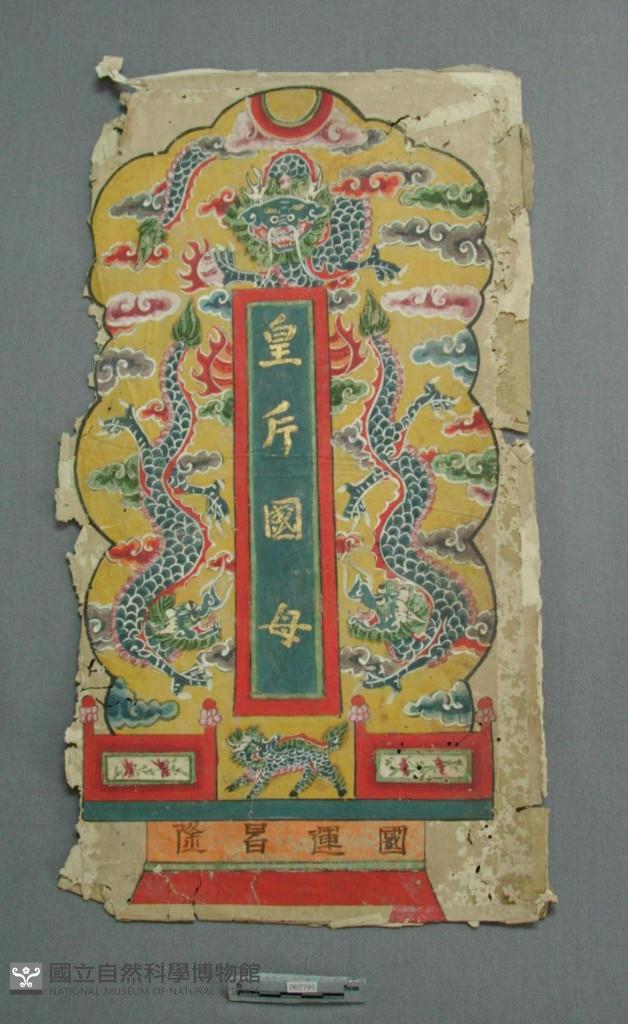 皇
斤
國
母
國運昌隆
國立自然科學博物館
NATIONAL MUSEUM OF NATURAL SCIENCE
002793
5cm